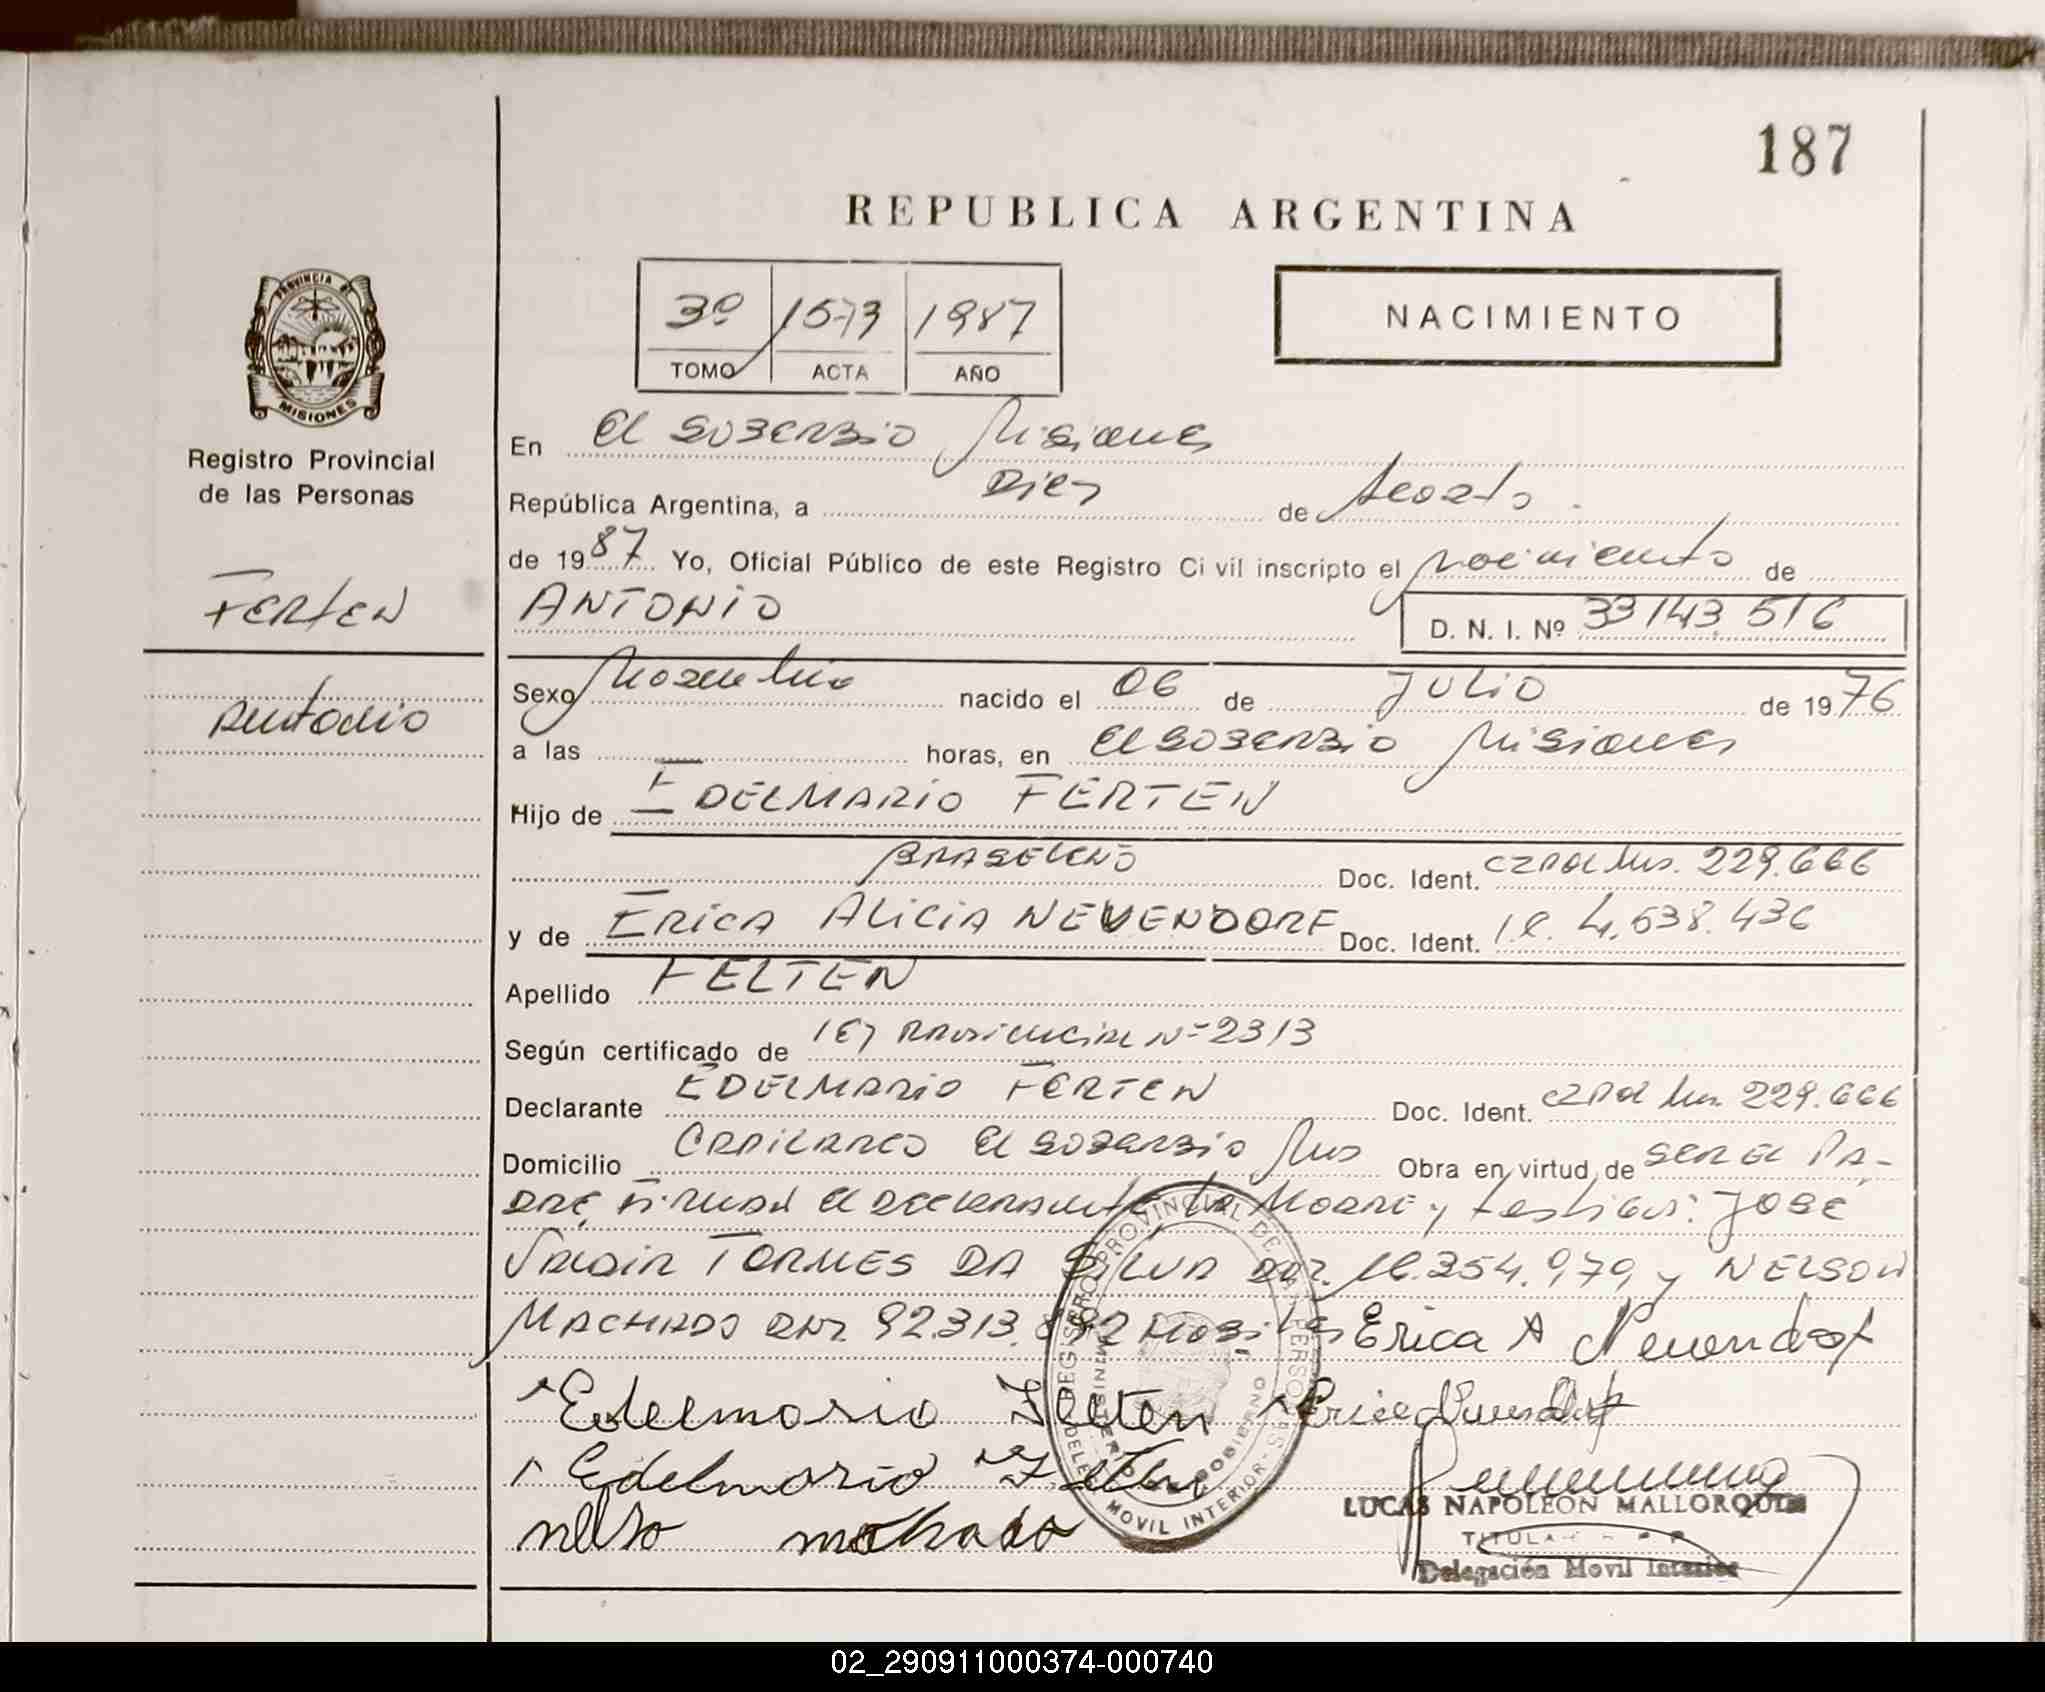 187
REPUBLICA ARGENTINA
3º 1573 1987
TOMO ACTA AÑO
NACIMIENTO
PROVINCIA DE
MISIONES
Registro Provincial
de las Personas
FERTEN
Antonio
En El Soberbio Misiones
República Argentina, a Diez de Agosto
de 1987 Yo, Oficial Público de este Registro Civil inscripto el nacimiento de
ANTONIO D. N. I. Nº 33 143 516
Sexo Masculino nacido el 06 de Julio de 1976
a las horas, en El Soberbio Misiones
Hijo de EDELMARIO FERTEN
BRASELEÑO Doc. Ident. Mis. 229.666
y de ERICA ALICIA NEUENDORF Doc. Ident. 4.538.436
Apellido FELTEN
Según certificado de ley Provincial Nº 2313
Declarante EDELMARIO FERTEN Doc. Ident. Mis. 229.666
Domicilio El Soberbio Mis Obra en virtud de SER EL PA-
DRE, Firman el declarante, la Madre y testigos: JOSÉ
TORMES DA SILVA DNI. 354.979, y NELSON
MACHADO DNI. 92.313. Erica A Neuendorf
Edelmario Felten
Edelmario Felten
machado
REGISTRO PROVINCIAL DE LAS PERSONAS
MINISTERIO DE GOBIERNO
MOVIL INTERIOR
LUCAS NAPOLEON MALLORQUIN
TITULAR
Delegación Movil Interior
02_290911000374-000740